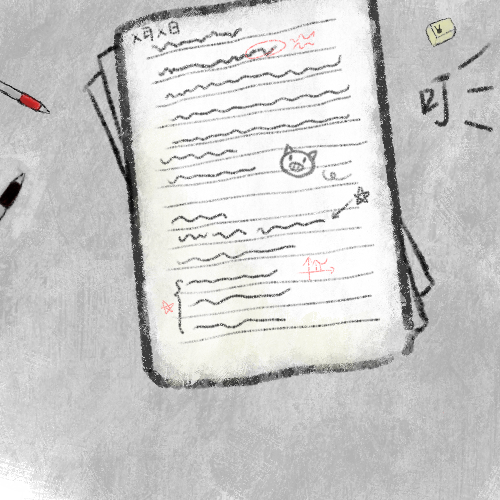 X月X日
叮